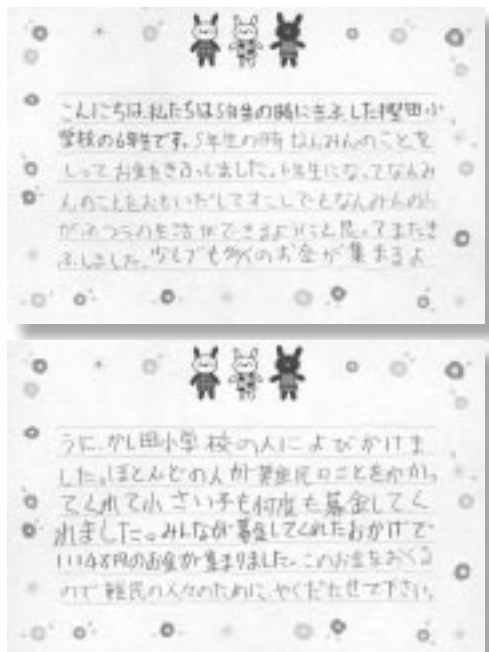 こんにちは、私たちは5年生の時にきふした樫田小
学校の6年生です。5年生の時なんみんのことを
しってお金をきふしました。6年生になってなんみ
んのことをおもいだしてすこしでもなんみんの人
がふつうの生活ができるようにと思ってまたき
ふしました。少しでも多くのお金が集まるよ
うに、かし田小学校の人によびかけま
した。ほとんどの人が難民のことをわかっ
てくれて小さい子も何度も募金してく
れました。みんなが募金してくれたおかげで
のお金が集まりました。このお金をおくる
ので難民の人々のために、やくだたせて下さい。